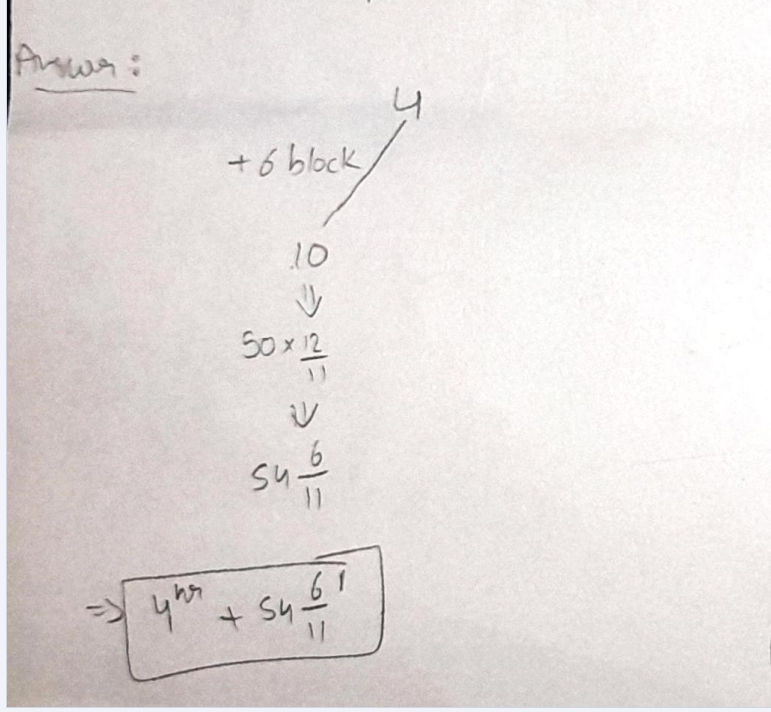 Answer:
4
+ 6 block
10
⇓
50 × 12/11
⇓
54 6/11
⇒ 4hr + 54 6/11'